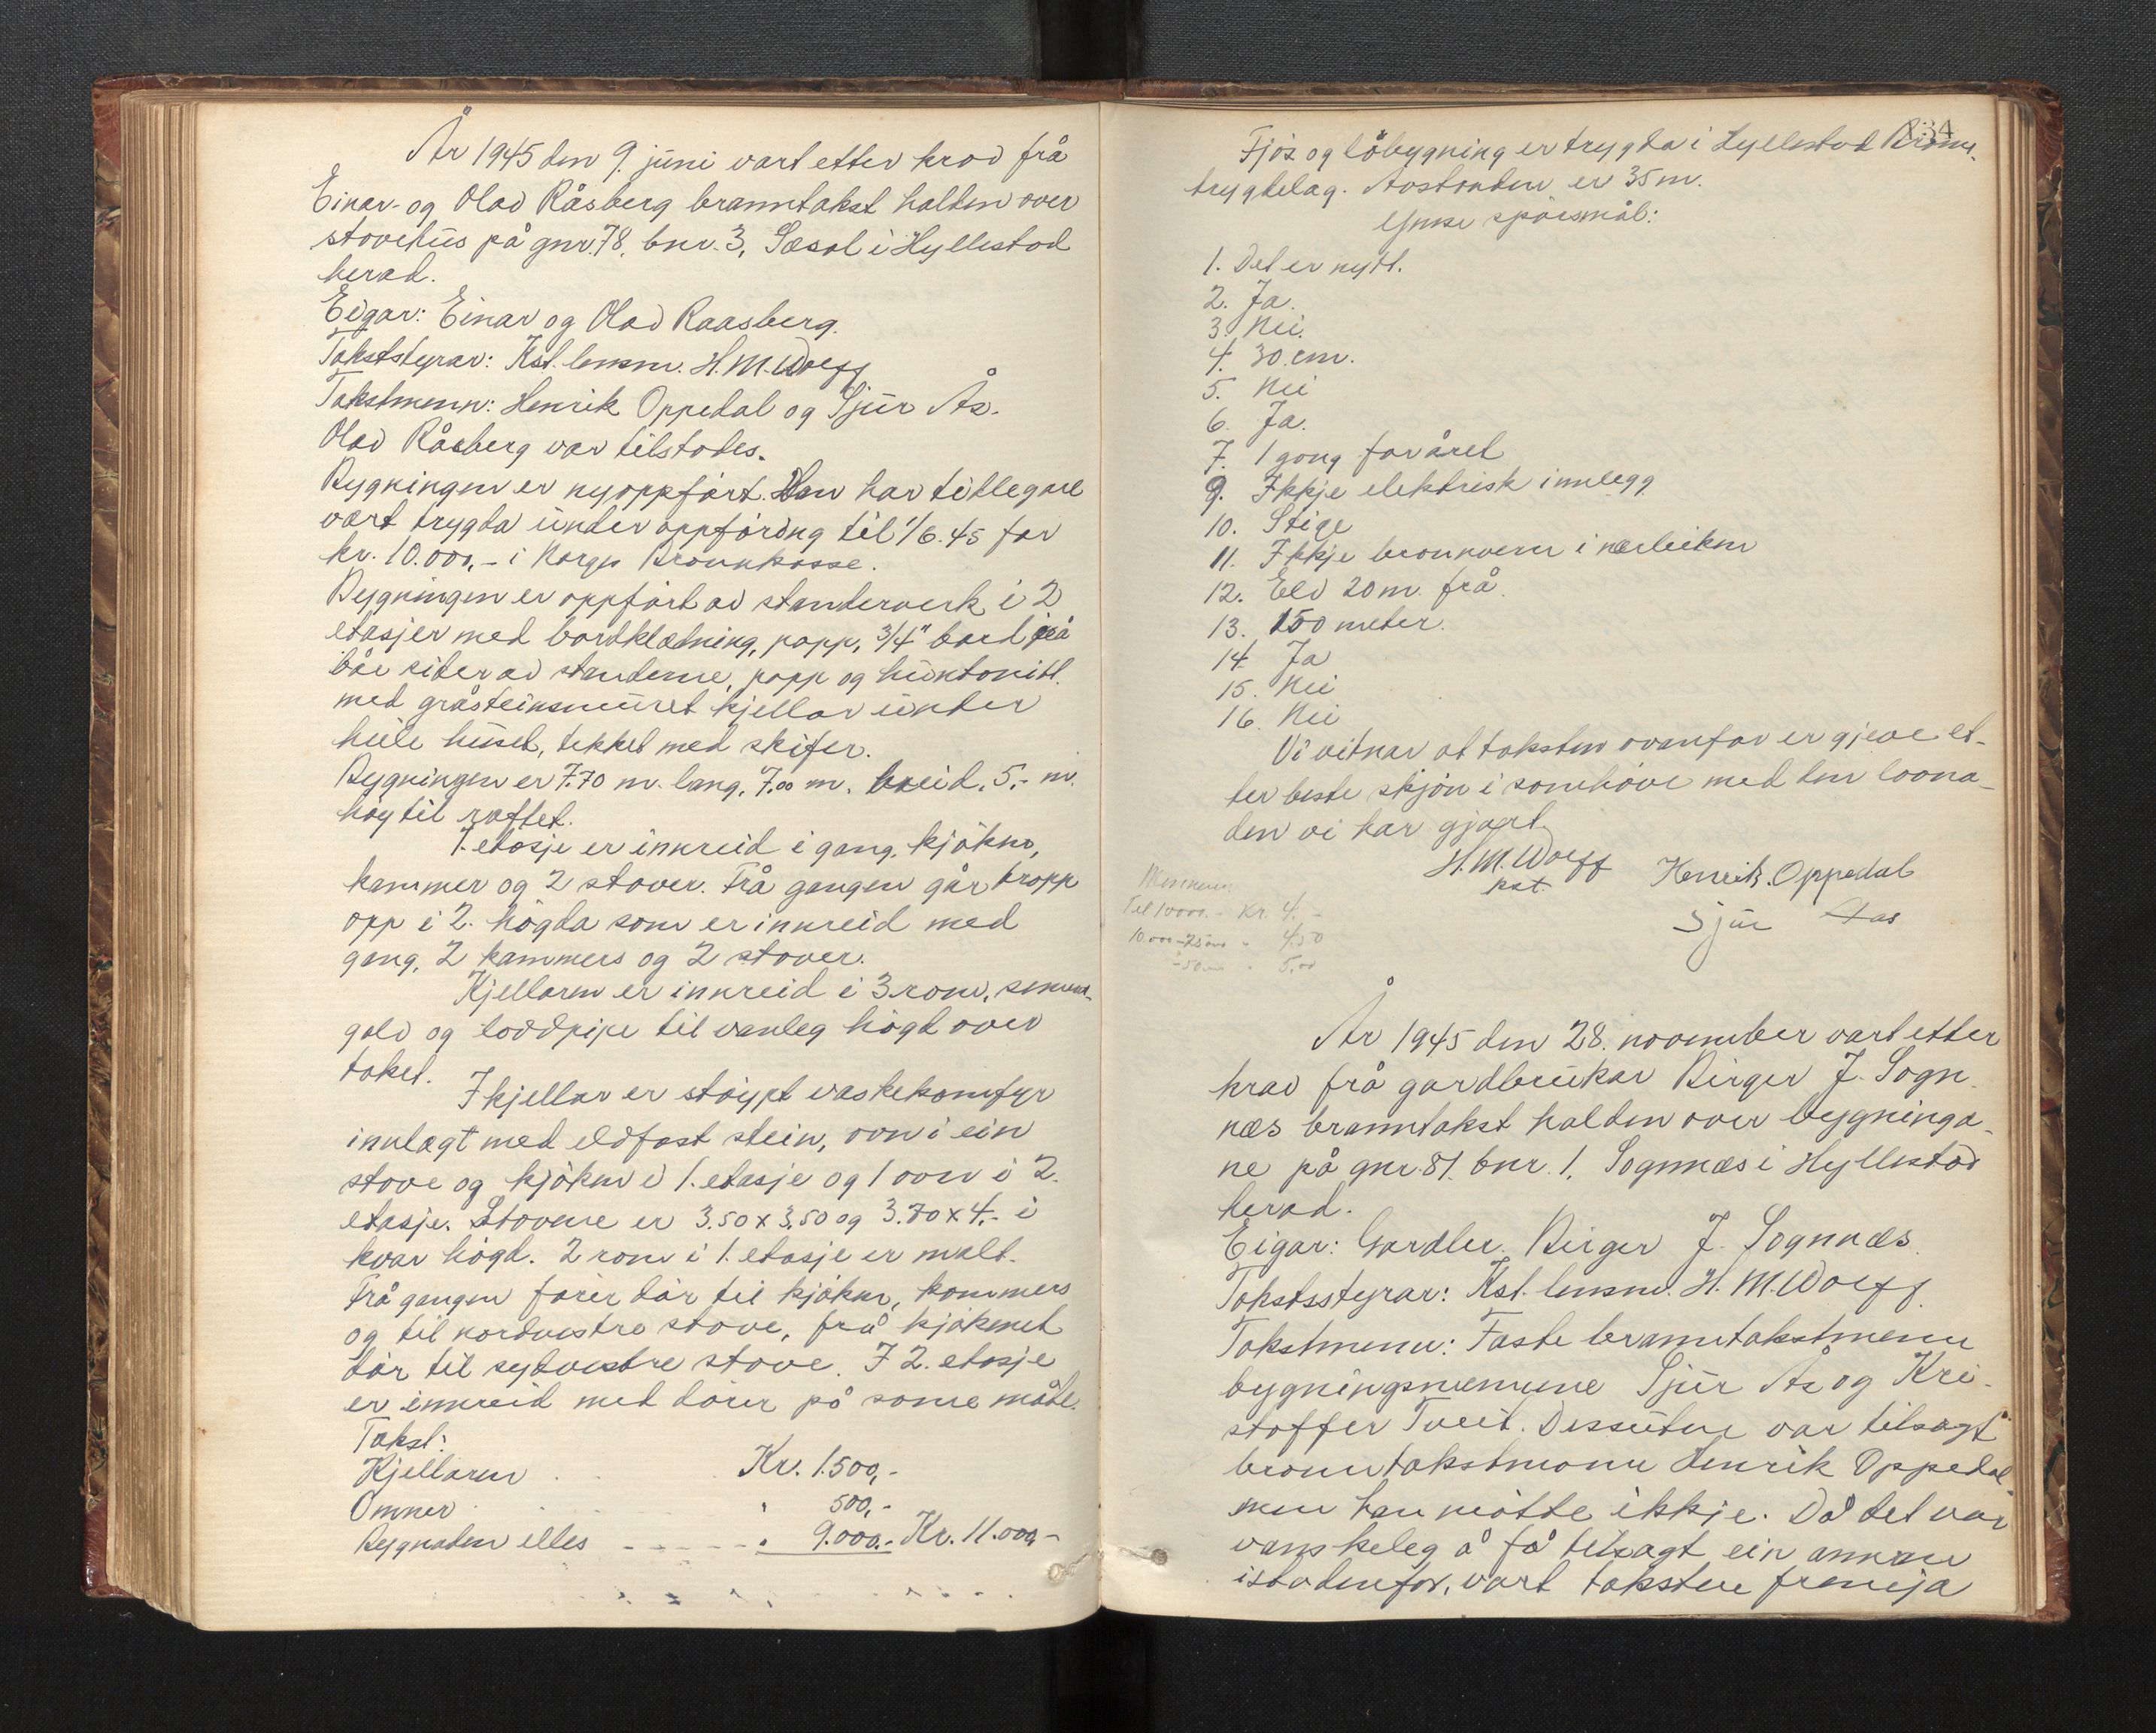 År 1945 den 9. juni vart etter krav frå
Einar- og Olav Råsberg branntakst halden over
stovehus på gnr. 78, bnr. 3, Sæsol i Hyllestad
herad.
Eigar: Einar og Olav Raasberg.
Takststyrar: Kst. lensm. H. M. Wolff
Takstmenn: Henrik Oppedal og Sjur Ås.
Olav Råsberg var tilstades.
Bygningen er nyoppført. Den har tidlegare
vært trygda under oppføring til 1/6.45 for
kr. 10.000,- i Norges Brannkasse.
Bygningen er oppført av standerverk i 2
etasjer med bordklædning, papp, 3/4" bord på
båe sider av standerne, papp og huntonitt.
med gråsteinsmuret kjellar under
heile huset, tekket med skifer.
Bygningen er 7.70 m. lang, 7.00 m. breid, 5,- m.
høg til raftet.
1. etasje er innreid i gang, kjøken,
kammer og 2 stover. Frå gangen går tropp
opp i 2. høgda som er innreid med
gang, 2 kammers og 2 stover.
Kjellaren er innreid i 3 rom, sement-
golv og loddpipe til vanleg høgd over
taket.
I kjellar er støypt vaskekomfyr
innlagt med eldfast stein, ovn i ein
stove og kjøken i 1. etasje og 1 ovn i 2.
etasje. Stovene er 3.50 x 3.50 og 3.70 x 4.- i
kvar høgd. 2 rom i 1. etasje er malt.
Frå gangen fører dør til kjøken, kammers
og til nordvestre stove, frå kjøkenet
dør til sydvestre stove. I 2. etasje
er innreid med dører på same måte.
Takst:
Kjellaren . . Kr. 1.500,-
Omner . . . " 500,-
Bygnaden elles - - - - " 9.000.- Kr. 11.000,-
834
Fjøs og løbygning er trygda i Hyllestad Brann-
trygdelag. Avstanden er 35 m.
Ymse spørsmål:
1. Det er nytt.
2. Ja.
3. Nei.
4. 30 cm.
5. Nei
6. Ja.
7. 1 gong for året
9. Ikkje elektrisk innlegg
10. Stige
11. Ikkje brannvern i nærleiken
12. Elv 20 m. frå.
13. 150 meter.
14. Ja
15. Nei
16. Nei
Vi vitnar at taksten ovanfor er gjeve et-
ter beste skjøn i samhøve med den lovna-
den vi har gjort.
H. M. Wolff Henrik. Oppedal
kst.
Sjur Aas
Til 10000.- Kr. 4.-
10.000-25000 " 4.50
" 5,00
År 1945 den 28. november vart etter
krav frå gardbrukar Birger J. Sogn-
næs branntakst halden over bygninga-
ne på gnr. 81. bnr. 1, Sognnæs i Hyllestad
herad.
Eigar: Gardbr. Birger J. Sognnæs
Takstsstyrar: Kst. lensm. H. M. Wolff.
Takstmenn: Faste branntakstmenn
bygningsmennene Sjur Ås og Kri-
stoffer Tveit. Dessuten var tilsagt
branntakstmann Henrik Oppedal,
men han møtte ikkje. Då det var
vanskeleg å få tilsagt ein annan
istadenfor, vart taksten fremja